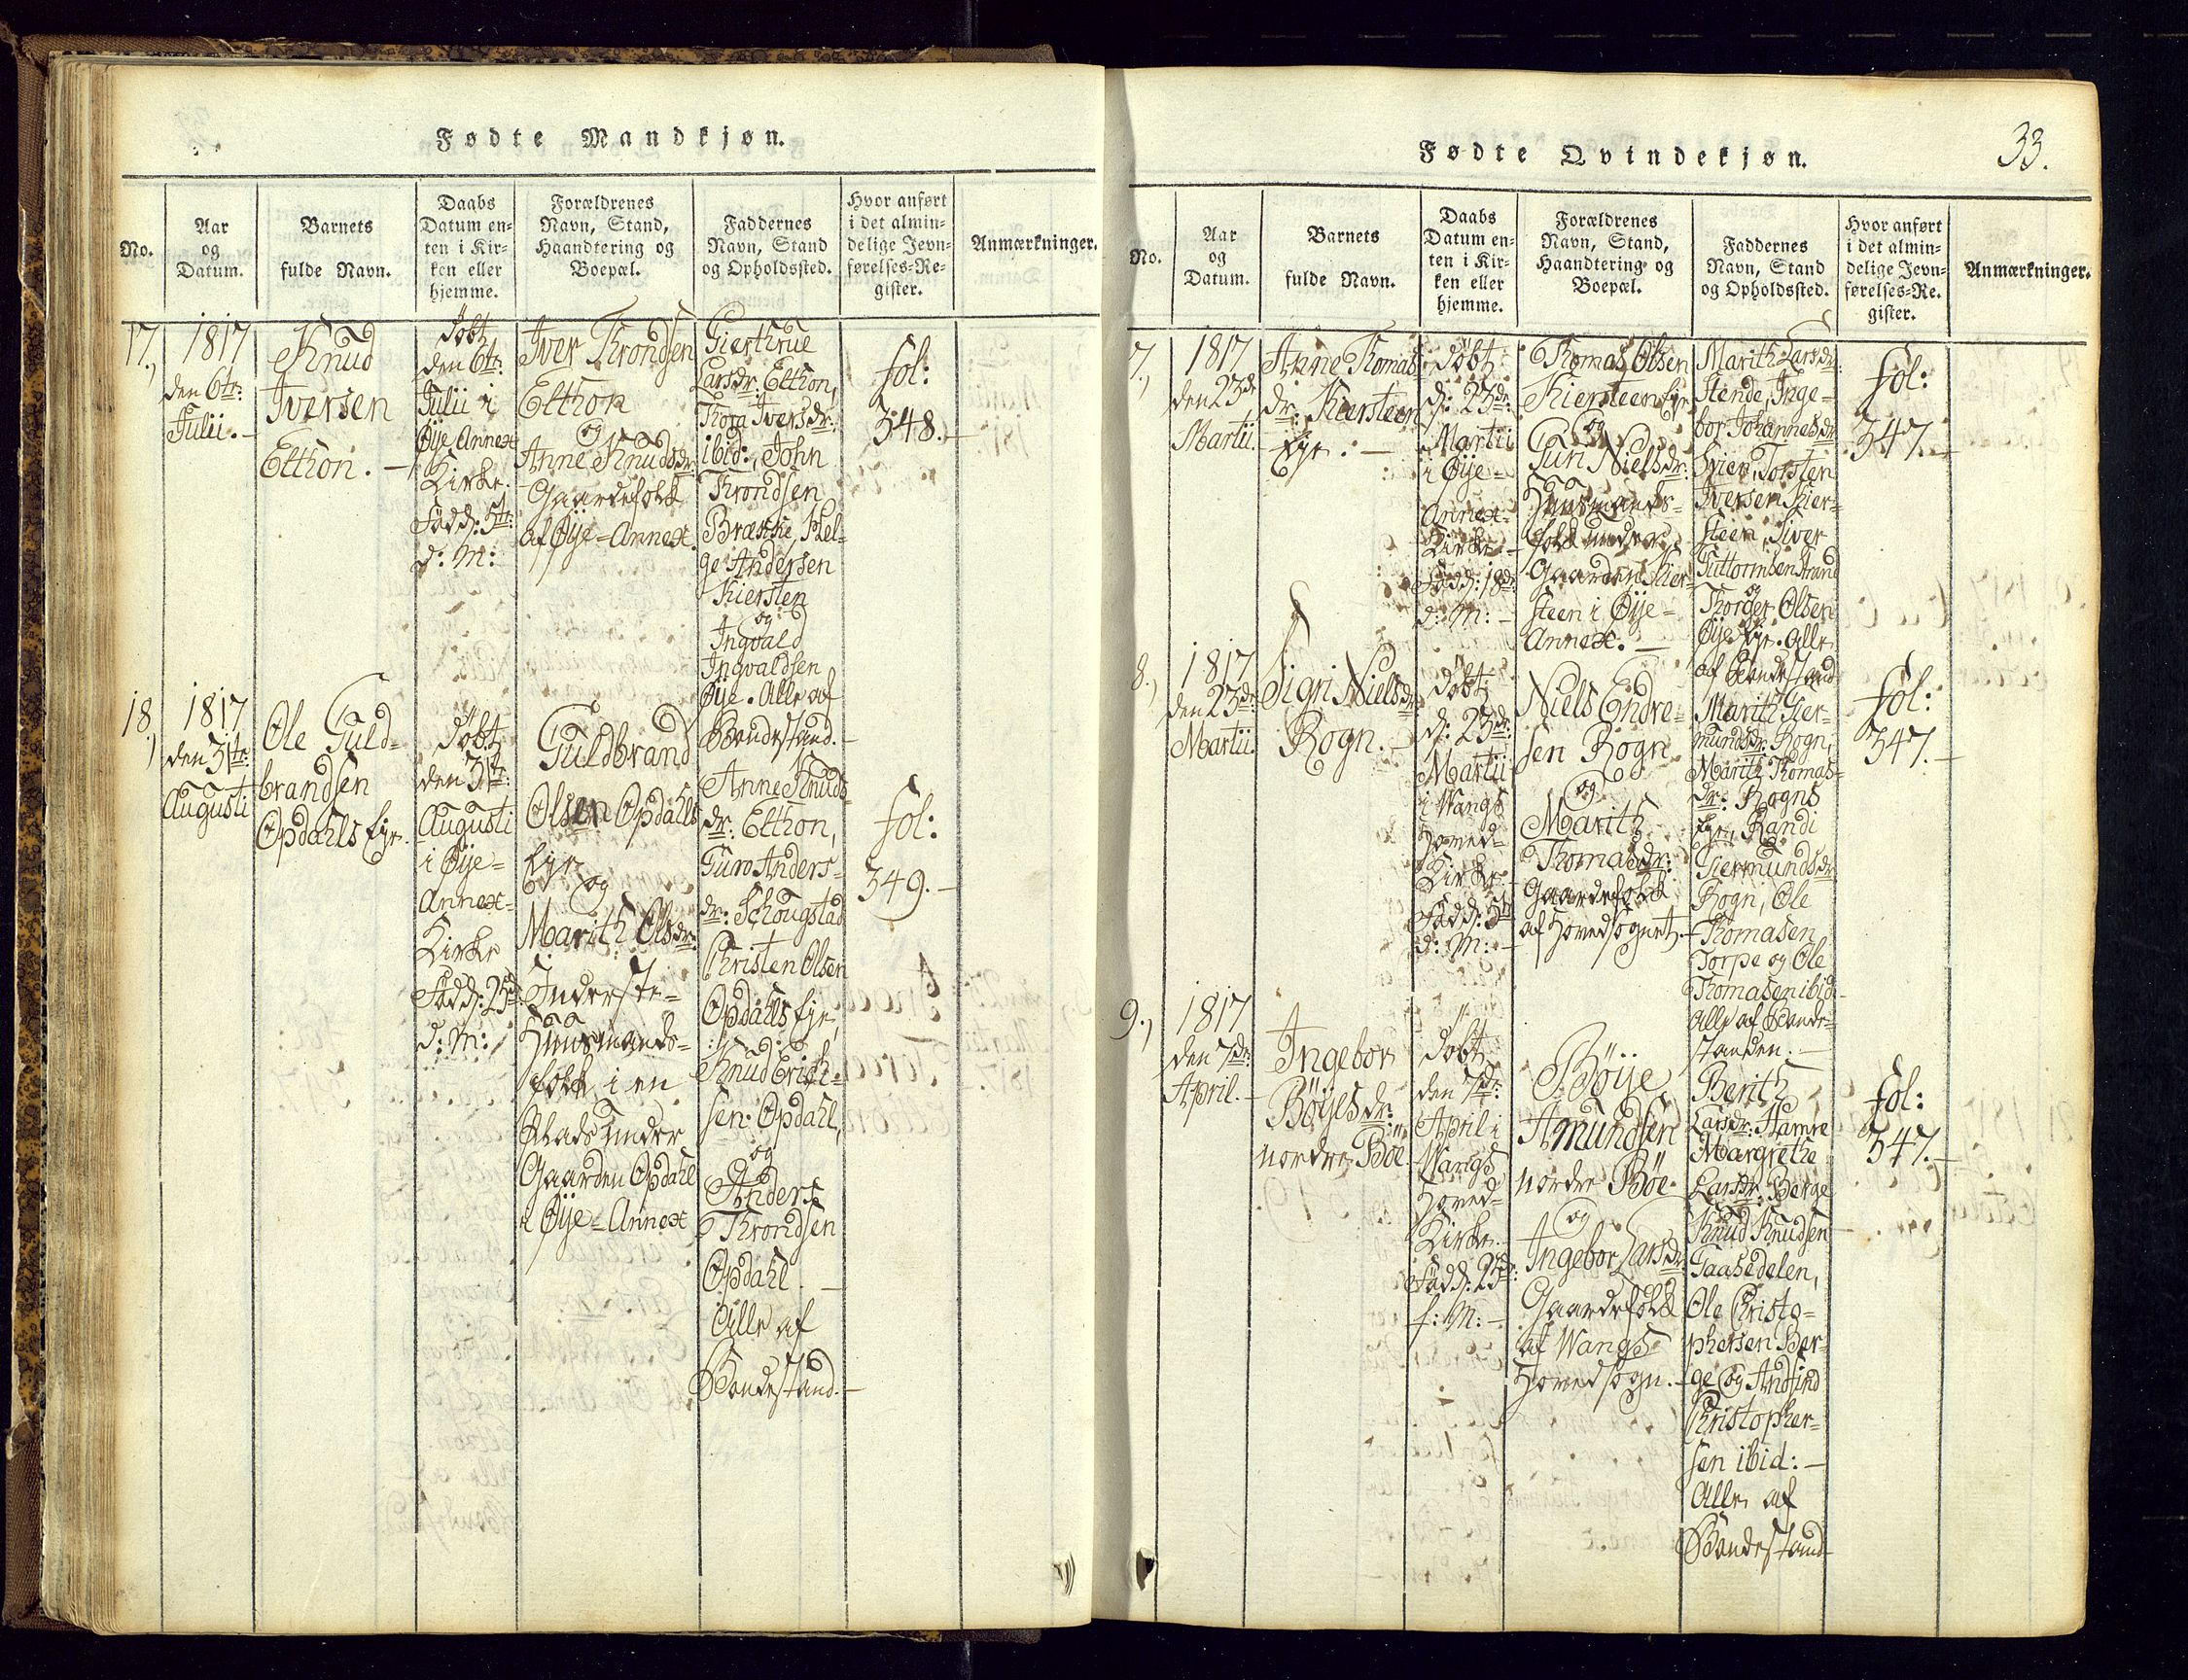 Fødte Mandkjøn.
No.
Aar
og
Datum.
Barnets
fulde Navn.
Daabs
Datum en-
ten i Kir-
ken eller
hjemme.
Forældrenes
Navn, Stand,
Haandtering og
Boepæl.
Faddernes
Navn, Stand
og Opholdssted.
Hvor anført
i det almin-
delige Jevn-
førelses-Re-
gister.
Anmærkninger.
17.,
1817
den 6te:
Julii.-
Knud
Iversen
Elthon.-
Döbt
den 6te:
Julii i
Øÿe Annex
Kirke.
Född: 5te:
d: M:
Iver Throndsen
Elthon
og
Anne Knudsdr:
Gaardefolk
af Øÿe=Annex.
Gierthrue
Larsdr: Elthon,
Thora Iversdr:
ibid:, John
Throndsen
Brække, Hel-
ge Andersen
Kiersten
og
Ingvald
Ingvaldsen
Øÿe. Alle af
Bondestand.-
fol:
348.-
18.,
1817
den 31te:
Augusti
Ole Guld-
brandsen
Opdahls Eje.
döbt
den 31te:
Augusti
i Øÿe=
Annex=
Kirke
Född: 25de:
d: M:
Guldbrand
Olsen Opdahls
Eje
og
Marith Olsdr:
Inderste=
Huusmands=
folk i en
Plads under
Gaarden Opdahl
i Øÿe=Annex
Anne Knuds-
dr: Elthon,
Guro Anders-
dr: Schougstad
Christen Olsen
Opdahls Eje,
Knud Erich-
sen Opdahl,
og
Anders
Throndsen
Opdahl.-
Alle af
Bondestand.-
fol:
349.-
33.
Fødte Qvindekjøn.
No.
Aar
og
Datum.
Barnets
fulde Navn.
Daabs
Datum en-
ten i Kir-
ken eller
hjemme.
Forældrenes
Navn, Stand,
Haandtering og
Boepæl.
Faddernes
Navn, Stand
og Opholdssted.
Hvor anført
i det almin-
delige Jevn-
førelses-Re-
gister.
Anmærkninger.
7.,
1817
den 23de
Martii.
Anne Thomas-
dr: Kiersteen
Eje.-
döbt
d: 23de:
Martii
i Øÿe=
Annex=
Kirke.-
Född: 18de:
d: M:-
Thomas Olsen
Kiersteen Eje
og
Guri Nielsdr:
Huusmands-
folk under
Gaarden Kier-
steen i Øÿe=
Annex.-
Marith Larsdr:
Stende, Inge-
bor Johannesdr
Torsten
Iversen Kier-
steen, Siver
Guttormsen Strand
og
Thorger Olsen
Øÿe Eje. Alle
af Bondestand
fol:
347.-
8.,
1817
den 23de:
Martii.
Sigri Nielsdr
Rogn.-
döbt
d: 23de:
Martii
i Wangs
Hoved=
Kirke.-
Född: 5te
d: M:-
Niels Endre-
sen Rogn
og
Marith
Thomasdr:
Gaardefolk
af Hovedsognet.-
Marith Gier-
mundsdr: Rogn,
Marith Thomas-
dr: Rogns
Eje, Randi
Giermundsdr
Rogn, Ole
Thomasen
Torpe og Ole
Thomasen ibid:
Alle af Bonde-
standen.-
fol:
347.-
9.,
1817
den 7de:
April.-
Ingebor
Böÿesdr:
nordre Böe
döbt
den 7de:
April i
Wangs
Hoved=
Kirke.-
Född: 25de:
f: M:-
Böÿe
Amundsen
nordre Böe
og
Ingebor Larsdr:
Gaardefolk
af Wangs
Hovedsogn.-
Berith
Larsdr: Hamre
Margrethe
Larsdr: Berge
Knud Knudsen
Gaasedelen,
Ole Christo-
phersen Ber-
ge og Andfind
Christopher-
sen ibid:-
Alle af
Bondestand
fol:
347.-